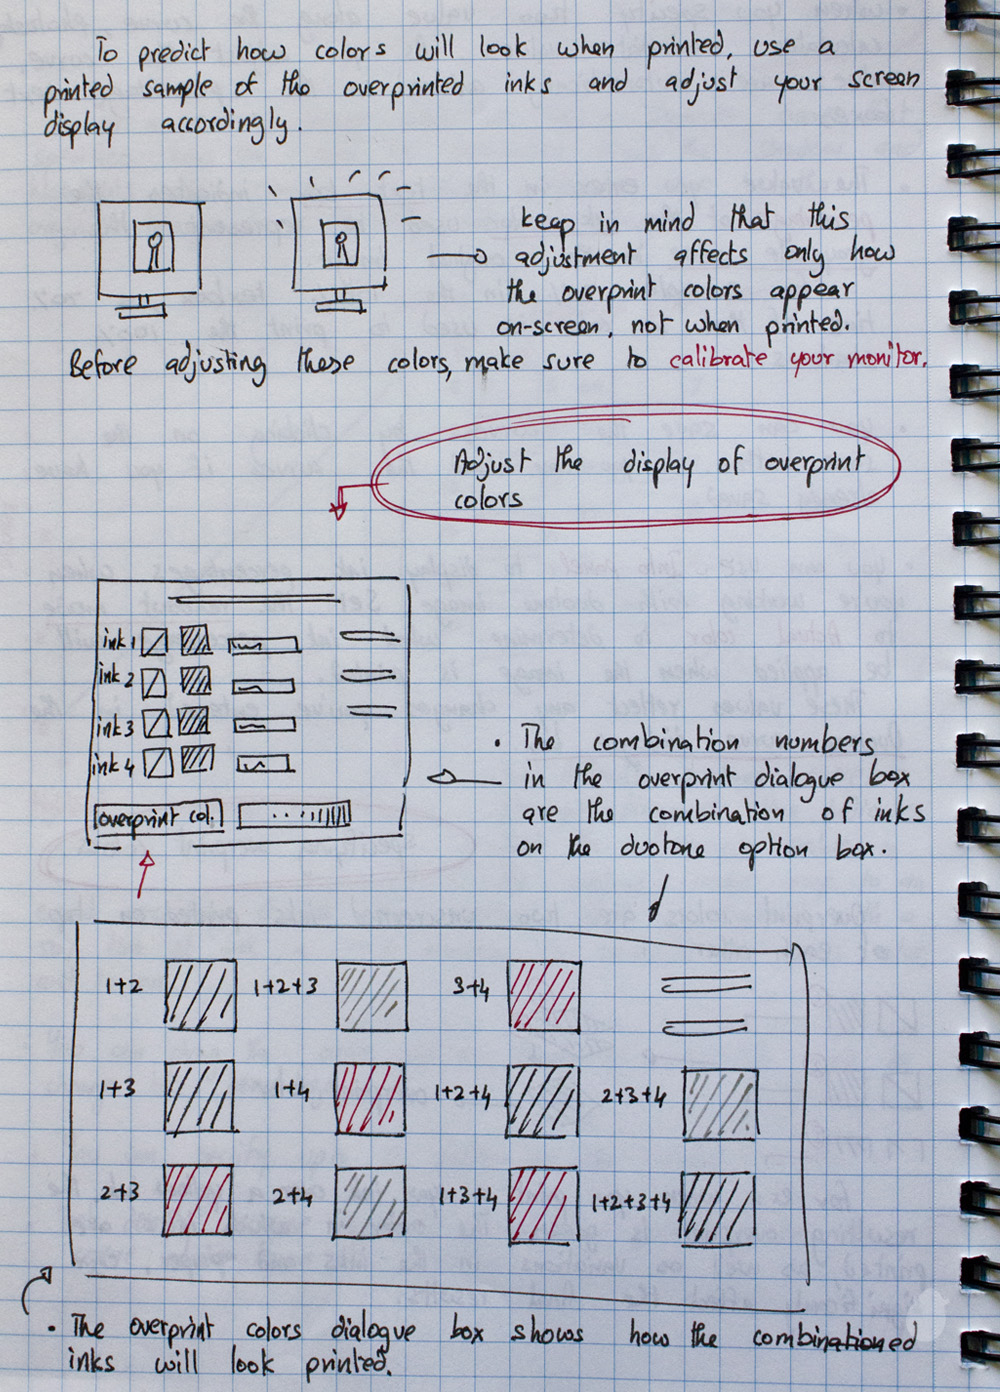 To predict how colors will look when printed, use a
printed sample of the overprinted inks and adjust your screen
display accordingly.
keep in mind that this
adjustment affects only how
the overprint colors appear
on-screen, not when printed.
Before adjusting these colors, make sure to calibrate your monitor.
Adjust the display of overprint
colors
ink 1
ink 2
ink 3
ink 4
overprint col.
• The combination numbers
in the overprint dialogue box
are the combination of inks
on the duotone option box.
1+2 1+2+3 3+4
1+3 1+4 1+2+4 2+3+4
2+3 2+4 1+3+4 1+2+3+4
• The overprint colors dialogue box shows how the combinationed
inks will look printed.